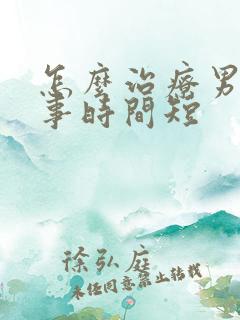 怎麼治療男
事時間短
徐弘庭
未經同意禁止轉載